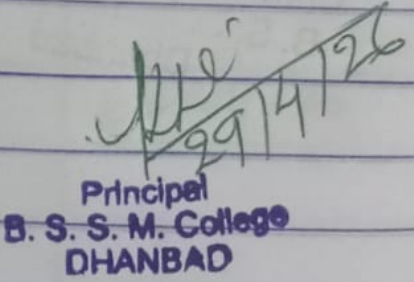 29/4/26
Principal
B. S. S. M. College
DHANBAD